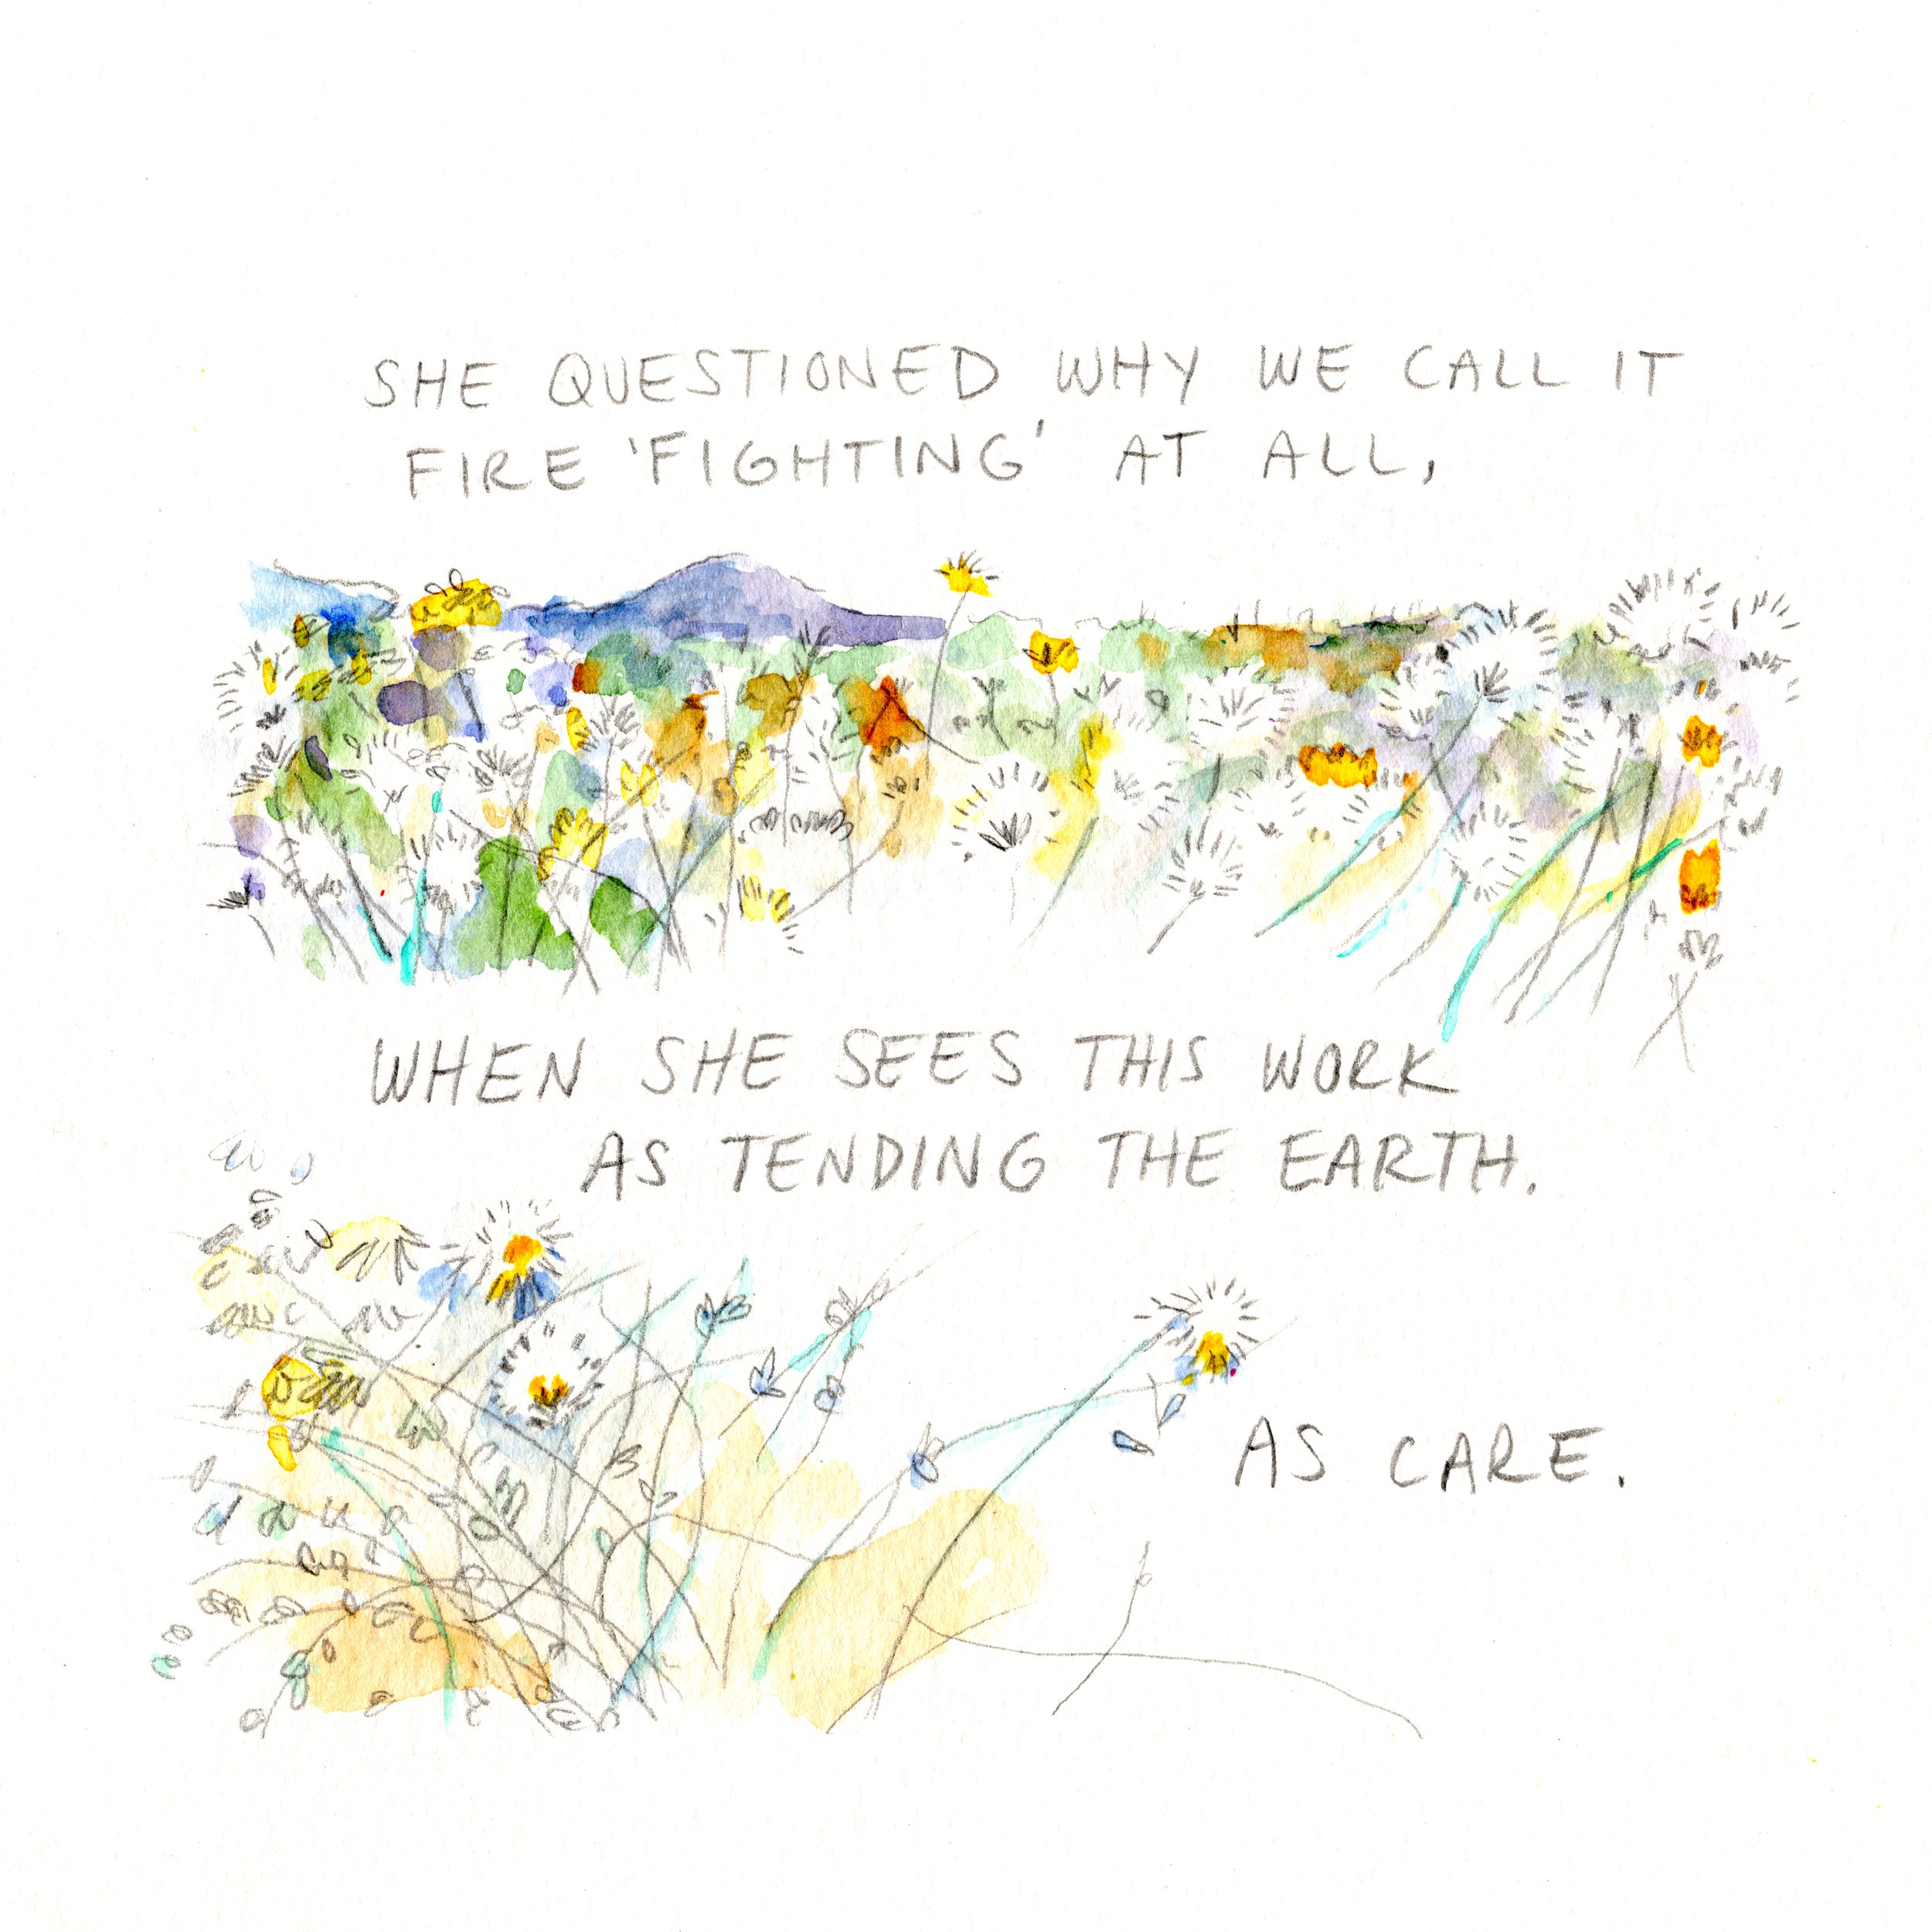 SHE QUESTIONED WHY WE CALL IT
FIRE 'FIGHTING' AT ALL,
WHEN SHE SEES THIS WORK
AS TENDING THE EARTH.
AS CARE.